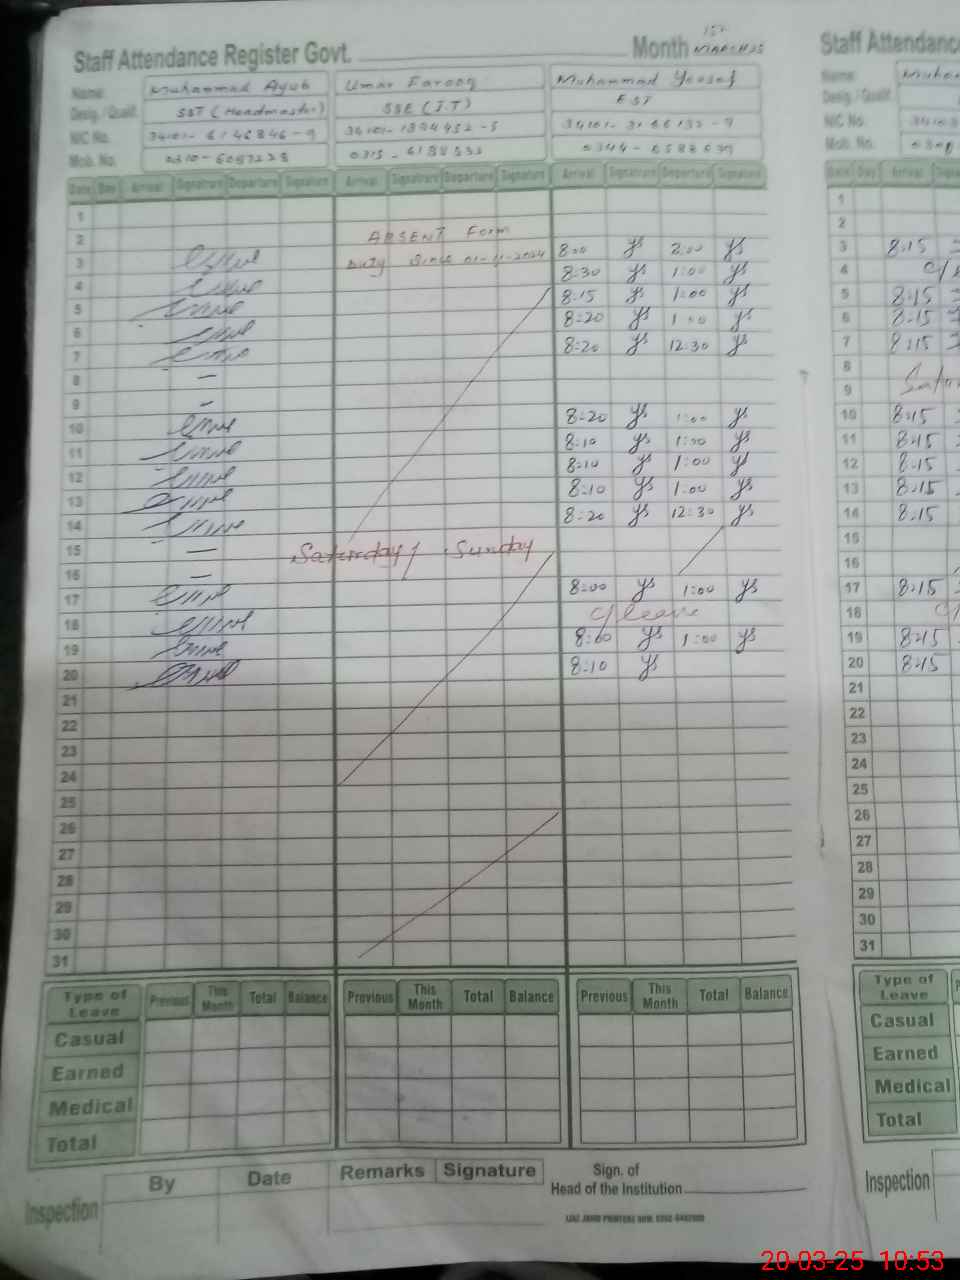 Staff Attendance Register Govt. Month March 25
Staff Attendance
Name: Muhammad Ayub Umar Farooq Muhammad Yousaf
Desig. / Qualif. SST (Headmaster) SSE (I.T) EST
NIC No.
Mob. No.
Date Day Arrival Signature Departure Signature Arrival Signature Departure Signature Arrival Signature Departure Signature
Date Day Arrival
1
2 ABSENT Form
3 Duty Since 01-11-2024 8:00 ys 2:00 ys 3 8:15
4 8:30 ys 1:00 ys 4
5 8:15 ys 1:00 ys 5 8:15
6 8:20 ys 1:00 ys 6 8:15
7 8:20 ys 12:30 ys 7 8:15
8 — 8
9 — 9
10 8:20 ys 1:00 ys 10 8:15
11 8:10 ys 1:00 ys 11 8:15
12 8:10 ys 1:00 ys 12 8:15
13 8:10 ys 1:00 ys 13 8:15
14 8:20 ys 12:30 ys 14 8:15
15 — Saturday / Sunday 15
16 — 16
17 8:00 ys 1:00 ys 17 8:15
18 c/leave 18
19 8:00 ys 1:00 ys 19 8:15
20 8:10 ys 20 8:15
21 21
22 22
23 23
24 24
25 25
26 26
27 27
28 28
29 29
30 30
31 31
Type of Leave Previous This Month Total Balance Previous This Month Total Balance Previous This Month Total Balance
Type of Leave
Casual Casual
Earned Earned
Medical Medical
Total Total
Inspection By Date Remarks Signature Sign. of
Head of the Institution
Inspection
20-03-25 10:53